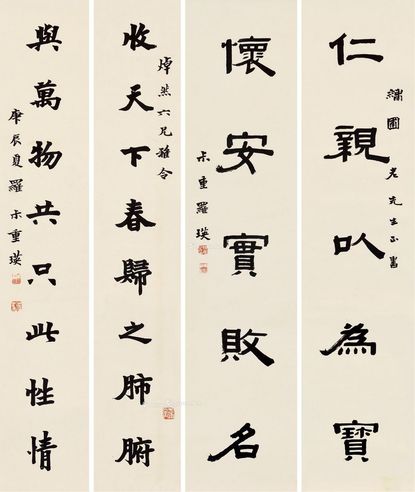 仁親以為寶
繡圃老先生正書
懷安實敗名
尗重羅瑛
收天下春歸之肺腑
焯然六兄雅令
與萬物共只此性情
庚辰夏羅尗重瑛